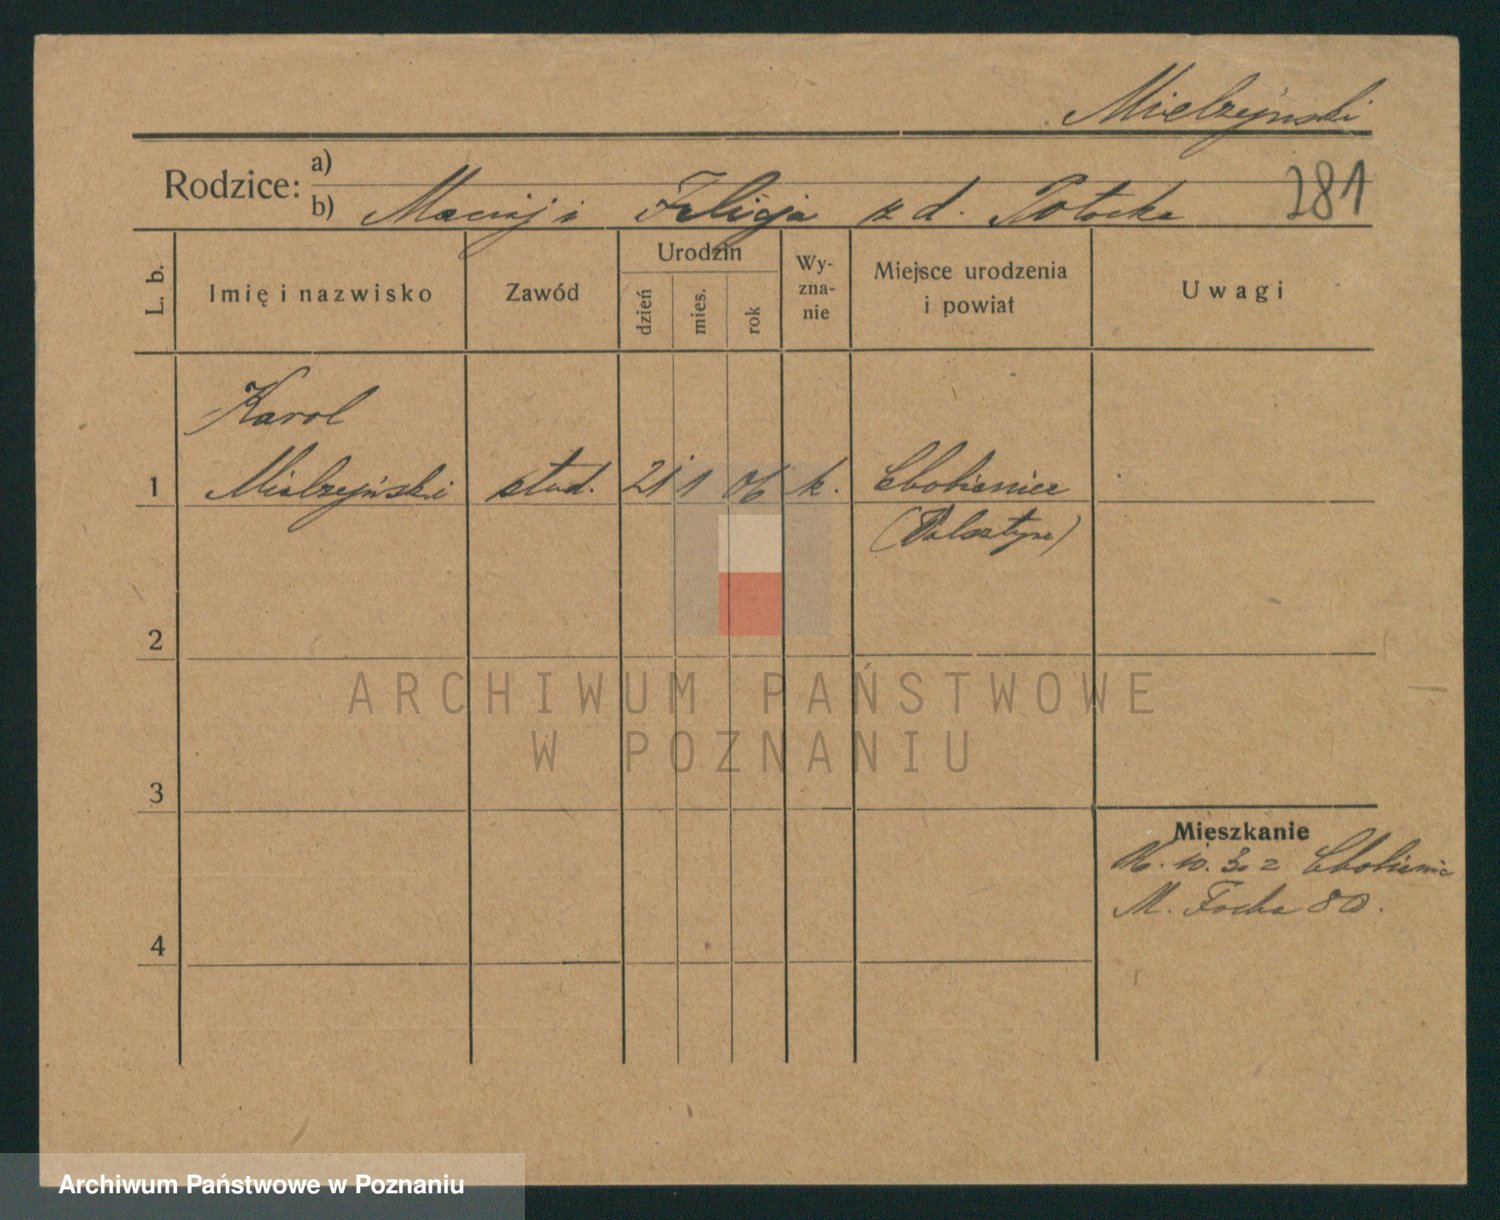 Mielżyński
Rodzice: a)
b) Maciej i Felicja z d. Potocka 281
L. b. Imię i nazwisko Zawód Urodzin dzień mies. rok Wy-zna-nie Miejsce urodzenia i powiat Uwagi
Karol
1 Mielżyński stud. 21 1 06 k. Chobienice
(Wolsztyn)
2
ARCHIWUM PAŃSTWOWE
W POZNANIU
3
Mieszkanie
10. 30 z Chobienic
M. Focha 80.
4
Archiwum Państwowe w Poznaniu